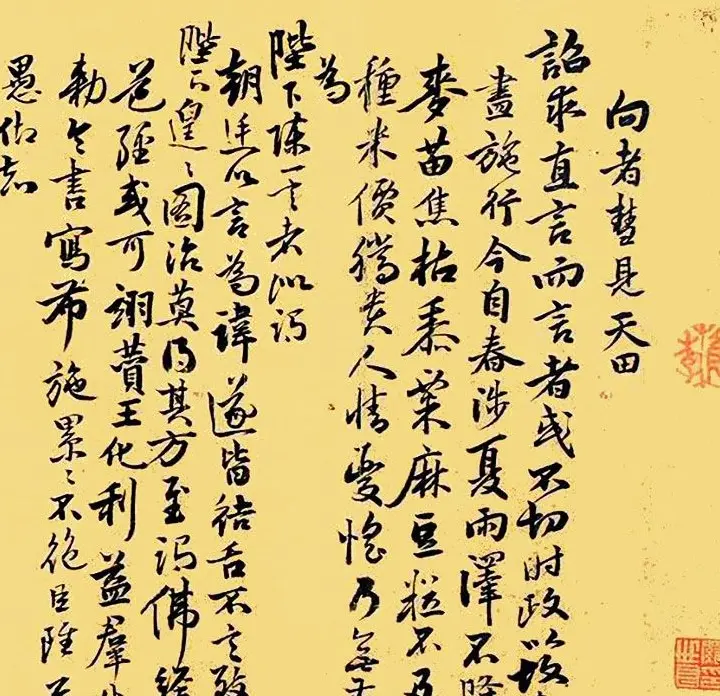 向者彗見天田
詔求直言而言者或不切时政以故
盡施行今自春涉夏雨澤不降
麥苗焦枯黍粟麻豆粒不及
種米價騰貴人情憂惶乃無
為
陛下陳一言者謂
朝廷以言為諱遂皆結舌不言致
陛下遑〻圖治莫得其方至謂佛經
經或可翊贊王化利益群
勅令書寫希施累〻不絕臣雖
愚仰知